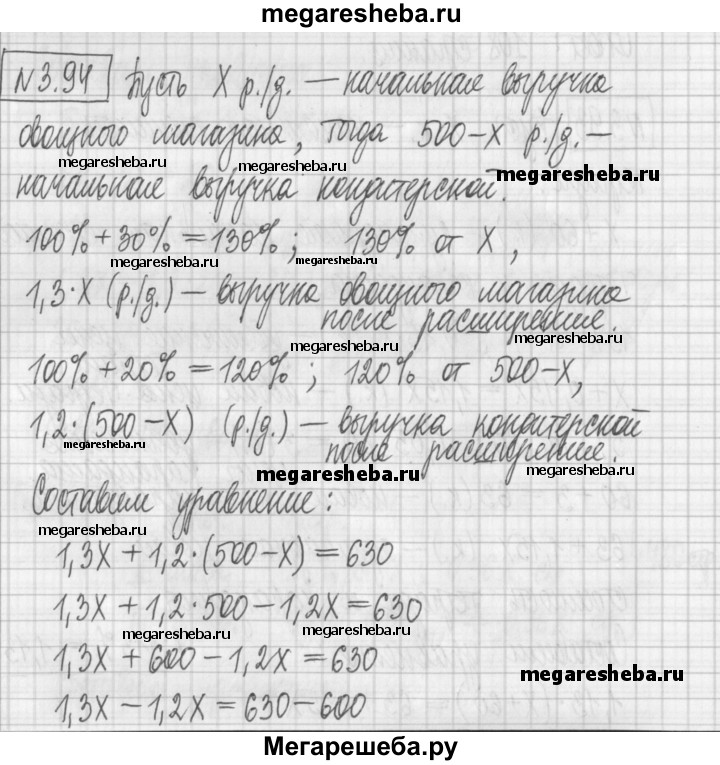 megaresheba.ru
N 3.94 Пусть X р./д. — начальная выручка
овощного магазина, тогда 500-X р./д. —
megaresheba.ru megaresheba.ru megaresheba.ru
начальная выручка кондитерской.
100% + 30% = 130% ; 130% от X ,
megaresheba.ru megaresheba.ru
1,3·X (р./д.) — выручка овощного магазина
после расширения.
megaresheba.ru
100% + 20% = 120% ; 120% от 500-X,
1,2·(500-X) (р./д.) — выручка кондитерской
после расширения.
megaresheba.ru
megaresheba.ru megaresheba.ru
Составим уравнение:
megaresheba.ru
1,3X + 1,2·(500-X) = 630
1,3X + 1,2·500 - 1,2X = 630
megaresheba.ru megaresheba.ru
1,3X + 600 - 1,2X = 630
megaresheba.ru
1,3X - 1,2X = 630 - 600
Мегарешеба.ру